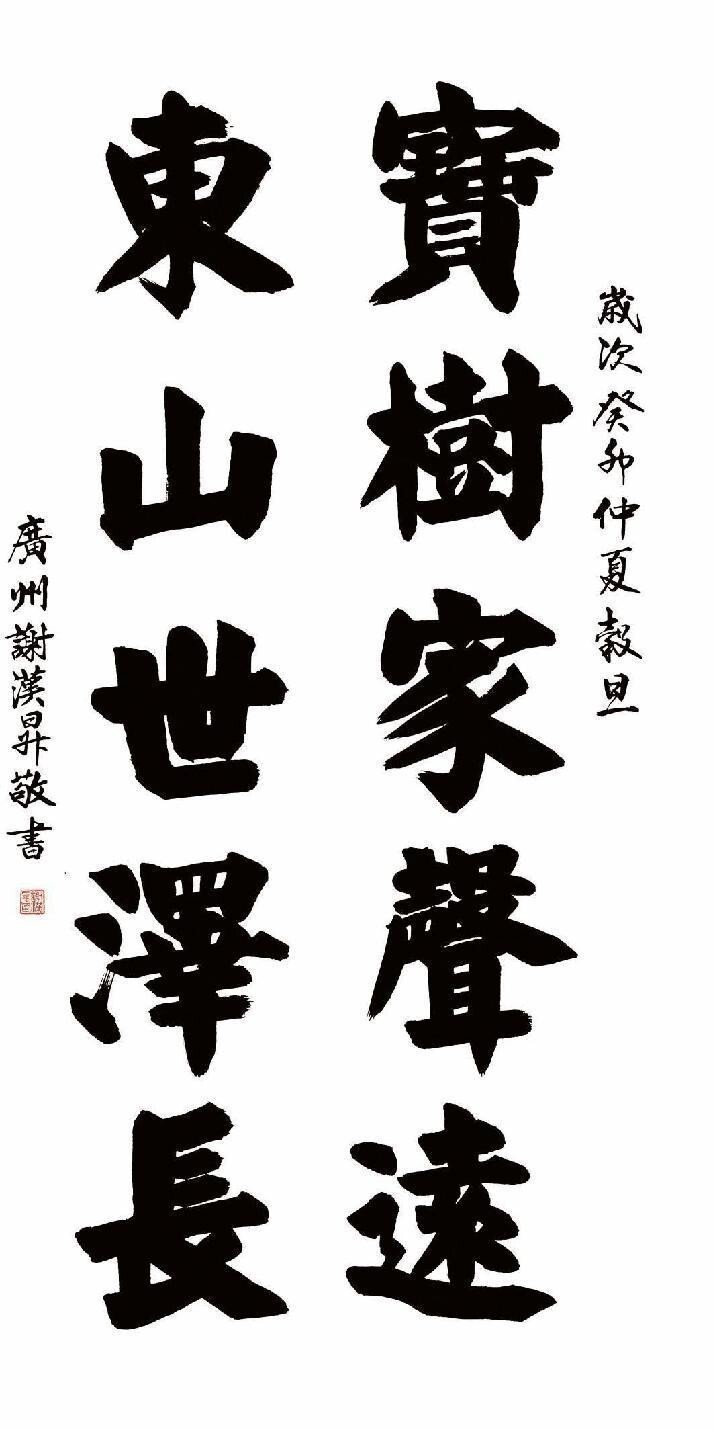 歲次癸卯仲夏穀旦
寶樹家聲遠
東山世澤長
廣州謝漢昇敬書